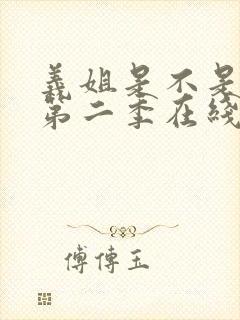 義姐是不是
第二季在綫
傅傳玉